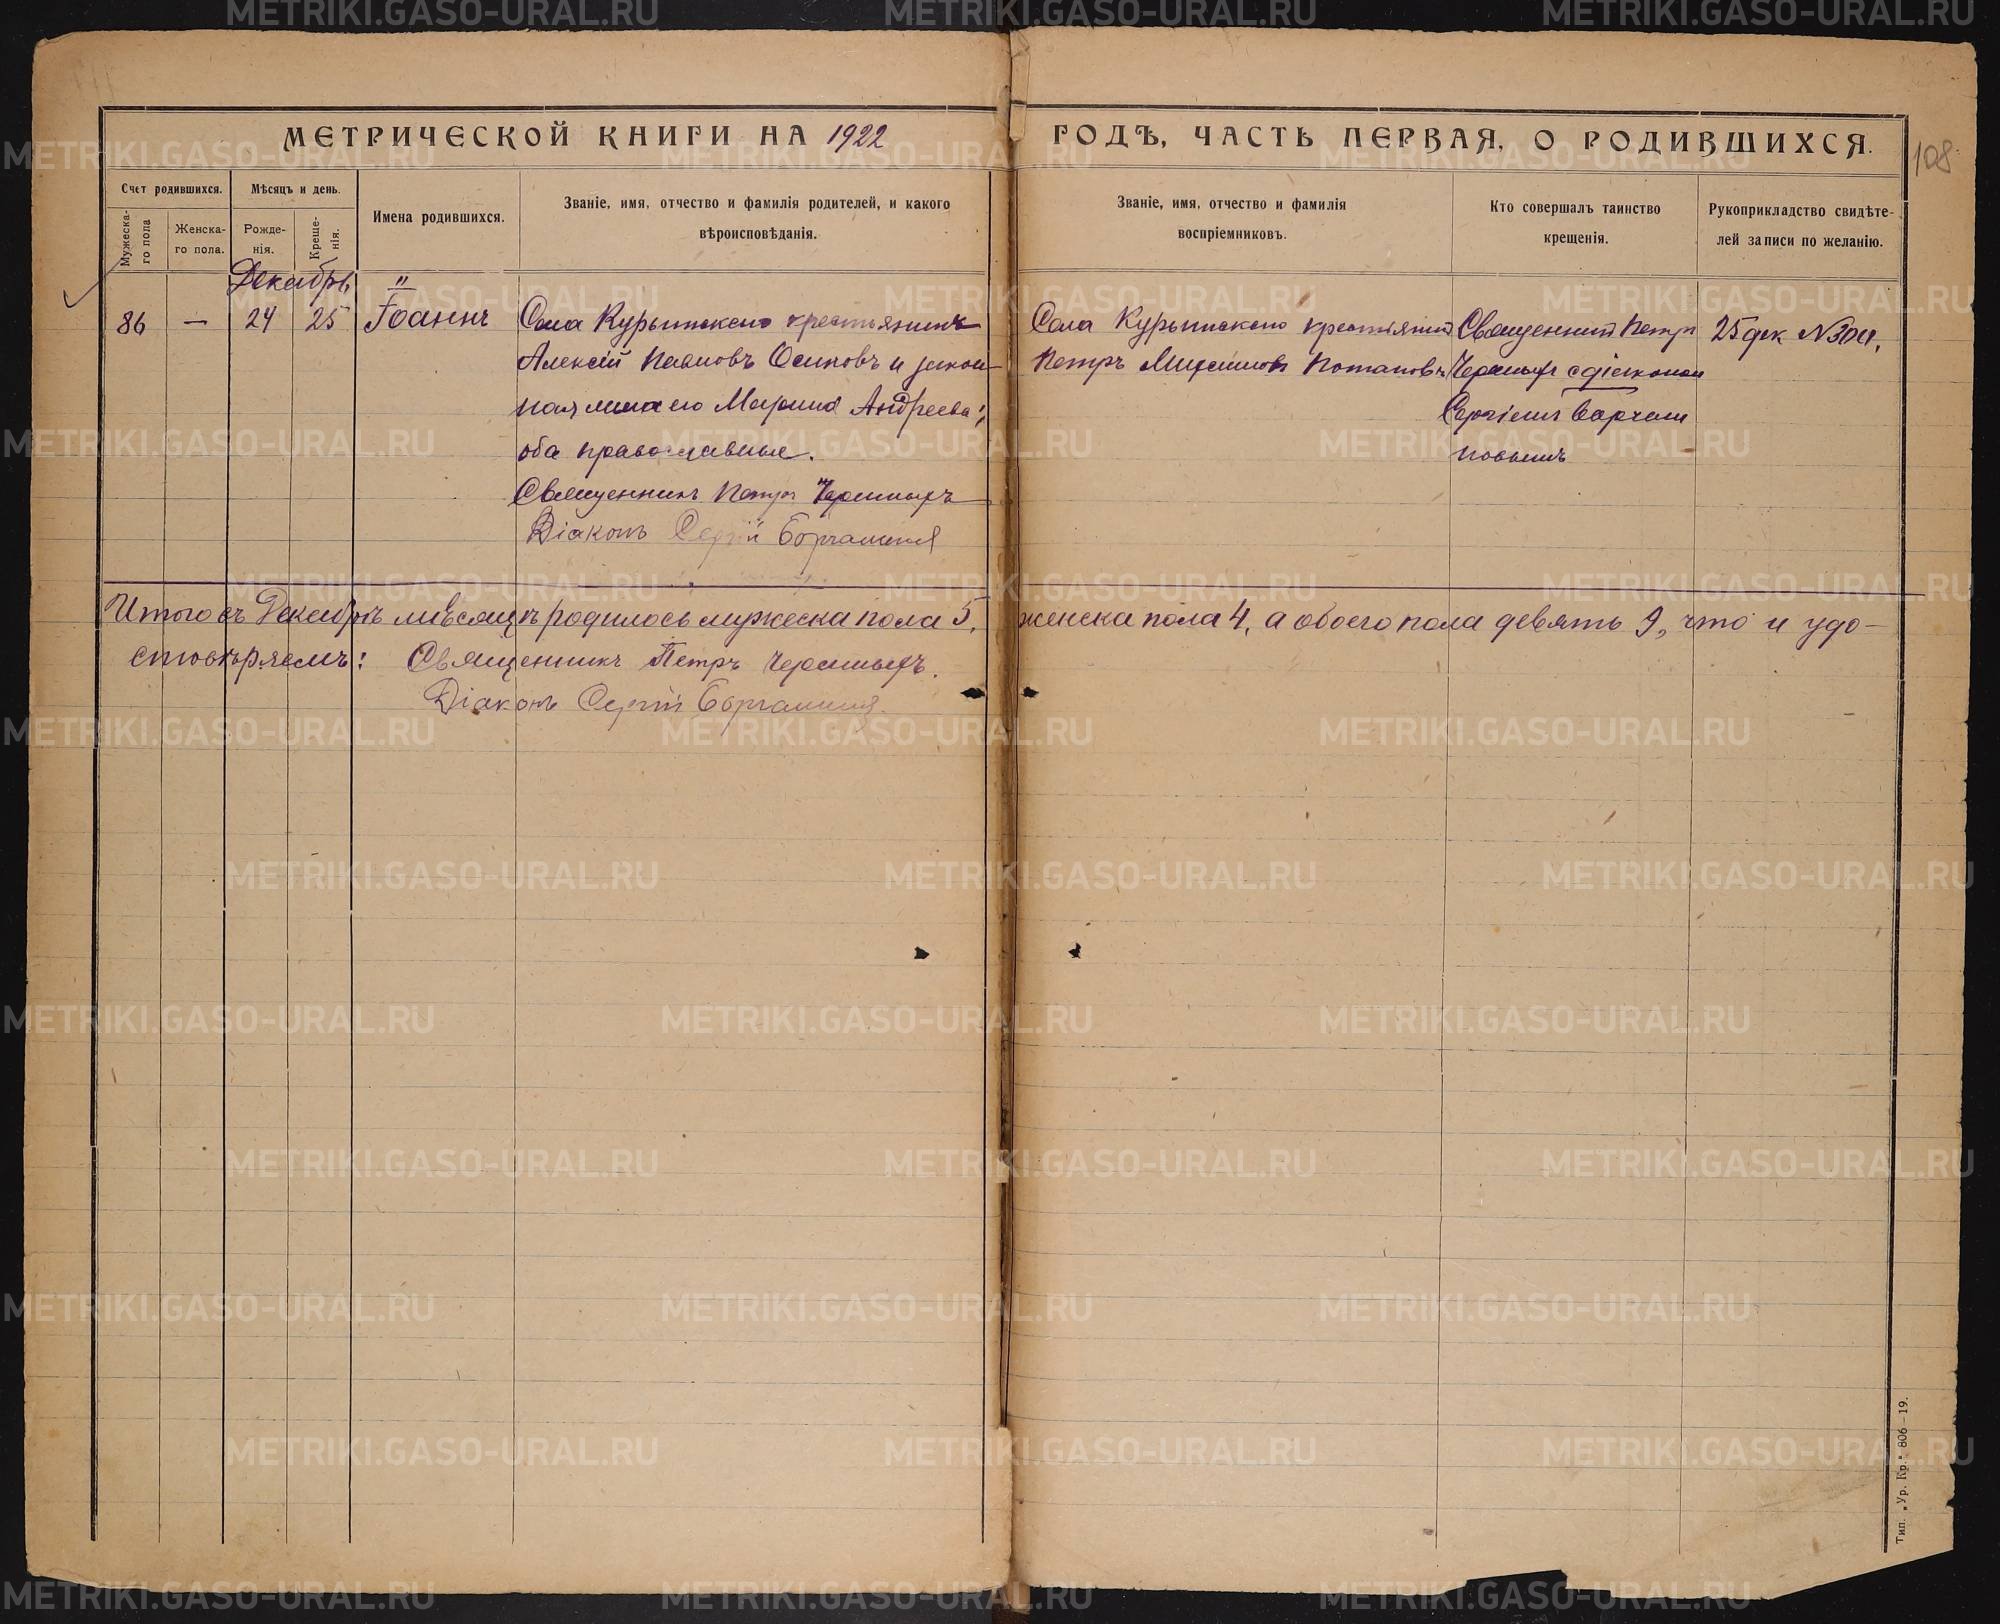 МЕТРИЧЕСКОЙ КНИГИ НА 1922 ГОДЪ, ЧАСТЬ ПЕРВАЯ, О РОДИВШИХСЯ.
108
Счет родившихся.
Мужеска-го пола
Женска-го пола.
Мѣсяцъ и день.
Рожде-нія.
Креще-нія.
Имена родившихся.
Званіе, имя, отчество и фамилія родителей, и какого
вѣроисповѣданія.
Званіе, имя, отчество и фамилія
воспріемниковъ.
Кто совершалъ таинство
крещенія.
Рукоприкладство свидѣте-
лей записи по желанію.
Декабрь
86 — 24 25 Іоаннъ
Села Курьинскаго крестьянинъ
Алексій Павловъ Осиповъ и закон-
ная жена его Марина Андреева;
оба православные.
Священникъ Петръ Черемныхъ
Діаконъ Сергій
Села Курьинскаго крестьянин
Петръ Потаповъ
Священник Петръ
с діакономъ
Сергіемъ
25 дек
Итого въ Декабрѣ мѣсяцѣ родилось мужеска пола 5, женска пола 4, а обоего пола девять 9, что и удо-
стовѣряемъ: Священникъ Петръ Черемныхъ.
Діаконъ Сергій
Тип. „Ур. Кр." 806—19.
METRIKI.GASO-URAL.RU